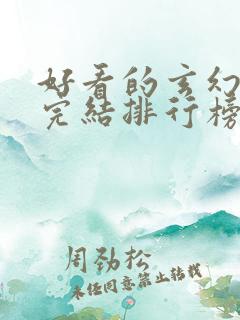 好看的玄幻
完结排行榜
周劲松
未经同意禁止转载